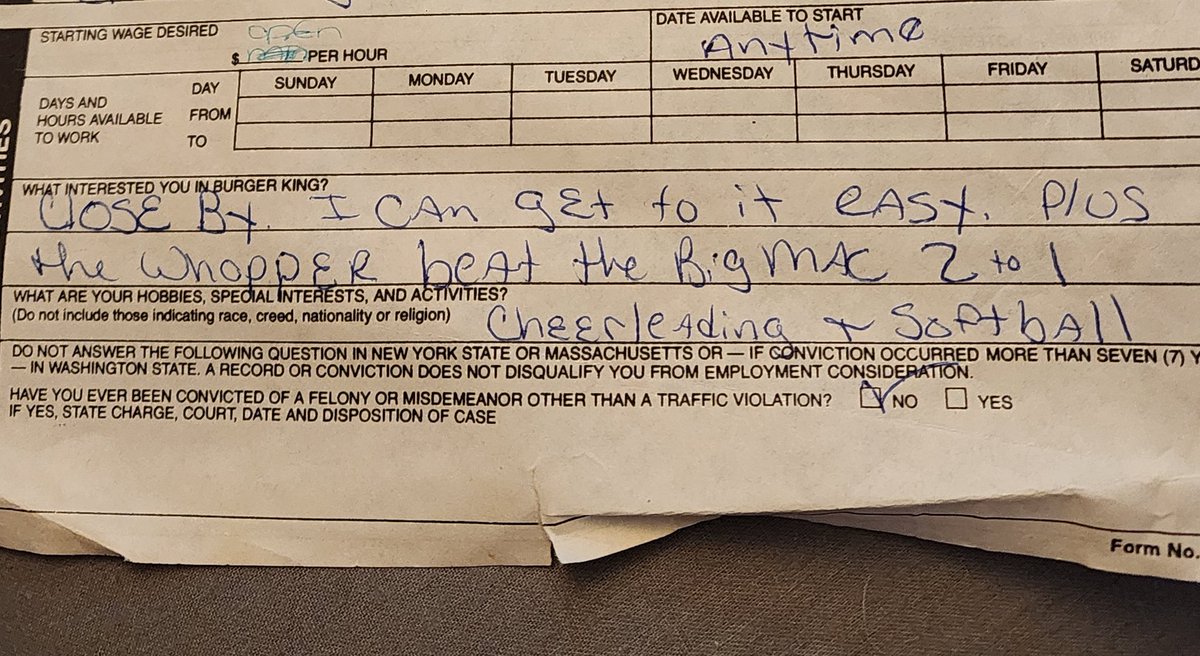 STARTING WAGE DESIRED open
$ PER HOUR
DATE AVAILABLE TO START
Anytime
DAYS AND HOURS AVAILABLE TO WORK
DAY SUNDAY MONDAY TUESDAY WEDNESDAY THURSDAY FRIDAY SATURD
FROM
TO
WHAT INTERESTED YOU IN BURGER KING?
Close By. I can get to it easy. Plus
the Whopper beat the Big Mac 2 to 1
WHAT ARE YOUR HOBBIES, SPECIAL INTERESTS, AND ACTIVITIES?
(Do not include those indicating race, creed, nationality or religion) Cheerleading + Softball
DO NOT ANSWER THE FOLLOWING QUESTION IN NEW YORK STATE OR MASSACHUSETTS OR — IF CONVICTION OCCURRED MORE THAN SEVEN (7) Y
— IN WASHINGTON STATE. A RECORD OR CONVICTION DOES NOT DISQUALIFY YOU FROM EMPLOYMENT CONSIDERATION.
HAVE YOU EVER BEEN CONVICTED OF A FELONY OR MISDEMEANOR OTHER THAN A TRAFFIC VIOLATION? NO YES
IF YES, STATE CHARGE, COURT, DATE AND DISPOSITION OF CASE
Form No.